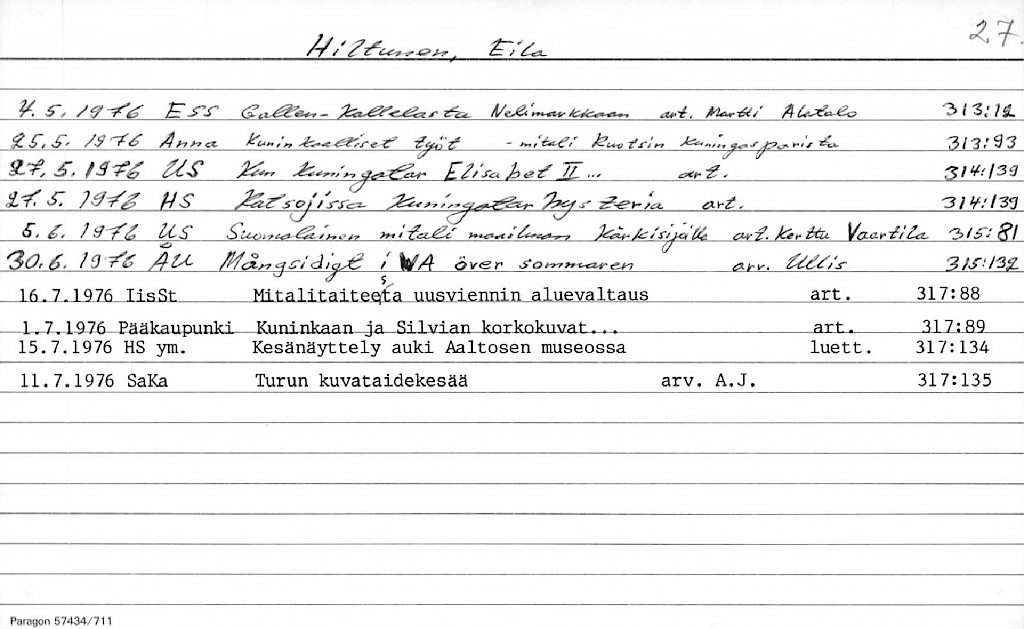 27.
Hiltunen, Eila
4.5.1976 ESS Gallen-Kallelasta Nelimarkkaan art. Martti Alatalo 313:12
25.5.1976 Anna Kuninkaalliset työt - mitali Ruotsin kuningasparista 313:93
27.5.1976 US Kun kuningatar Elisabet II... art. 314:139
27.5. 1976 HS Katsojissa kuningatarhysteria art. 314:139
5.6.1976 US Suomalainen mitali maailman kärkisijalle art. Kerttu Vaartila 315:81
30.6.1976 ÅU Mångsidigt i WA över sommaren arv. Ullis 315:132
16.7.1976 IisSt Mitalitaiteesta uusviennin aluevaltaus art. 317:88
1.7.1976 Pääkaupunki Kuninkaan ja Silvian korkokuvat... art. 317:89
15.7.1976 HS ym. Kesänäyttely auki Aaltosen museossa luett. 317:134
11.7.1976 SaKa Turun kuvataidekesää arv. A.J. 317:135
Paragon 57434/711